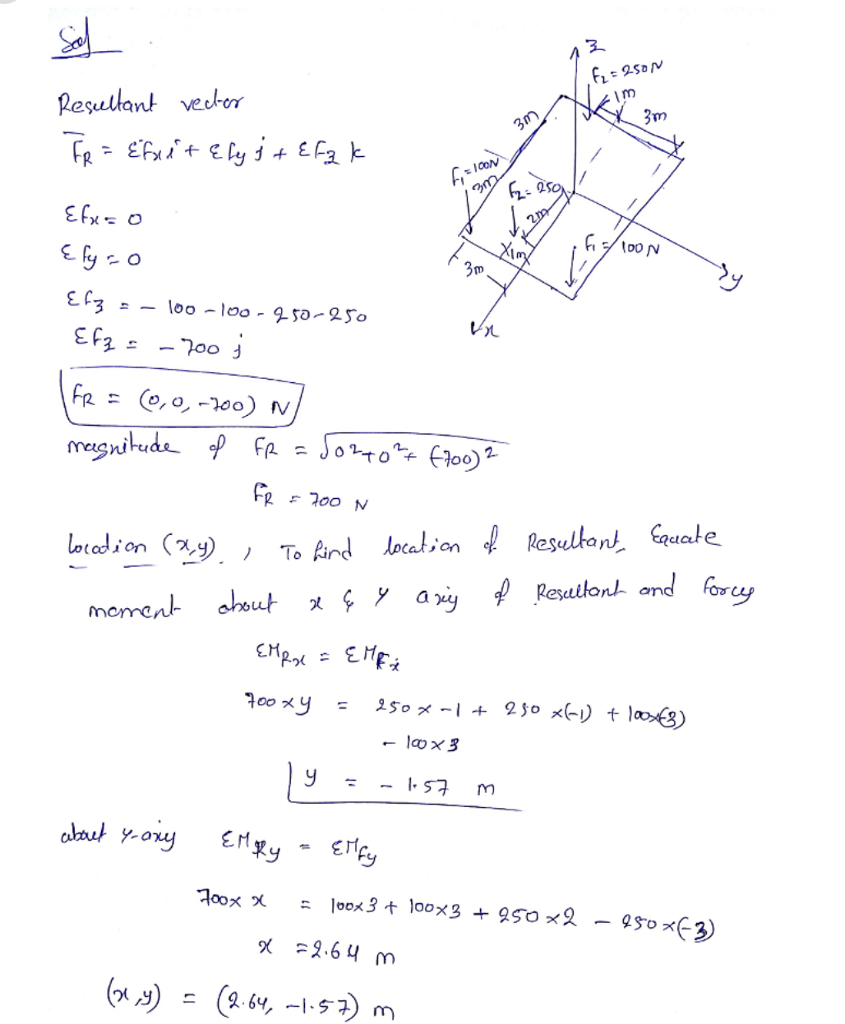 Sol
Resultant vector
F̅R = Σfxi + Σfy j + Σfz k
Σfx = 0
Σfy = 0
Σfz = - 100 - 100 - 250 - 250
Σfz = - 700 j
FR = (0, 0, -700) N
magnitude of FR = √0²+0²+ (-700)²
FR = 700 N
location (x,y) , To find location of Resultant, Equate
moment about x & y axis of Resultant and forces
ΣMRx = ΣMFx
700 x y = 250 x -1 + 250 x(-1) + 100x(-3)
- 100 x 3
y = - 1.57 m
about y-axis ΣMRy = ΣMFy
700 x x = 100x3 + 100x3 + 250 x2 - 250 x(-3)
x = 2.64 m
(x,y) = (2.64, -1.57) m
z
F2 = 250N
1m
3m
3m
F1 = 100N
3m
F2 = 250
2m
1m
F1 = 100 N
3m
y
x